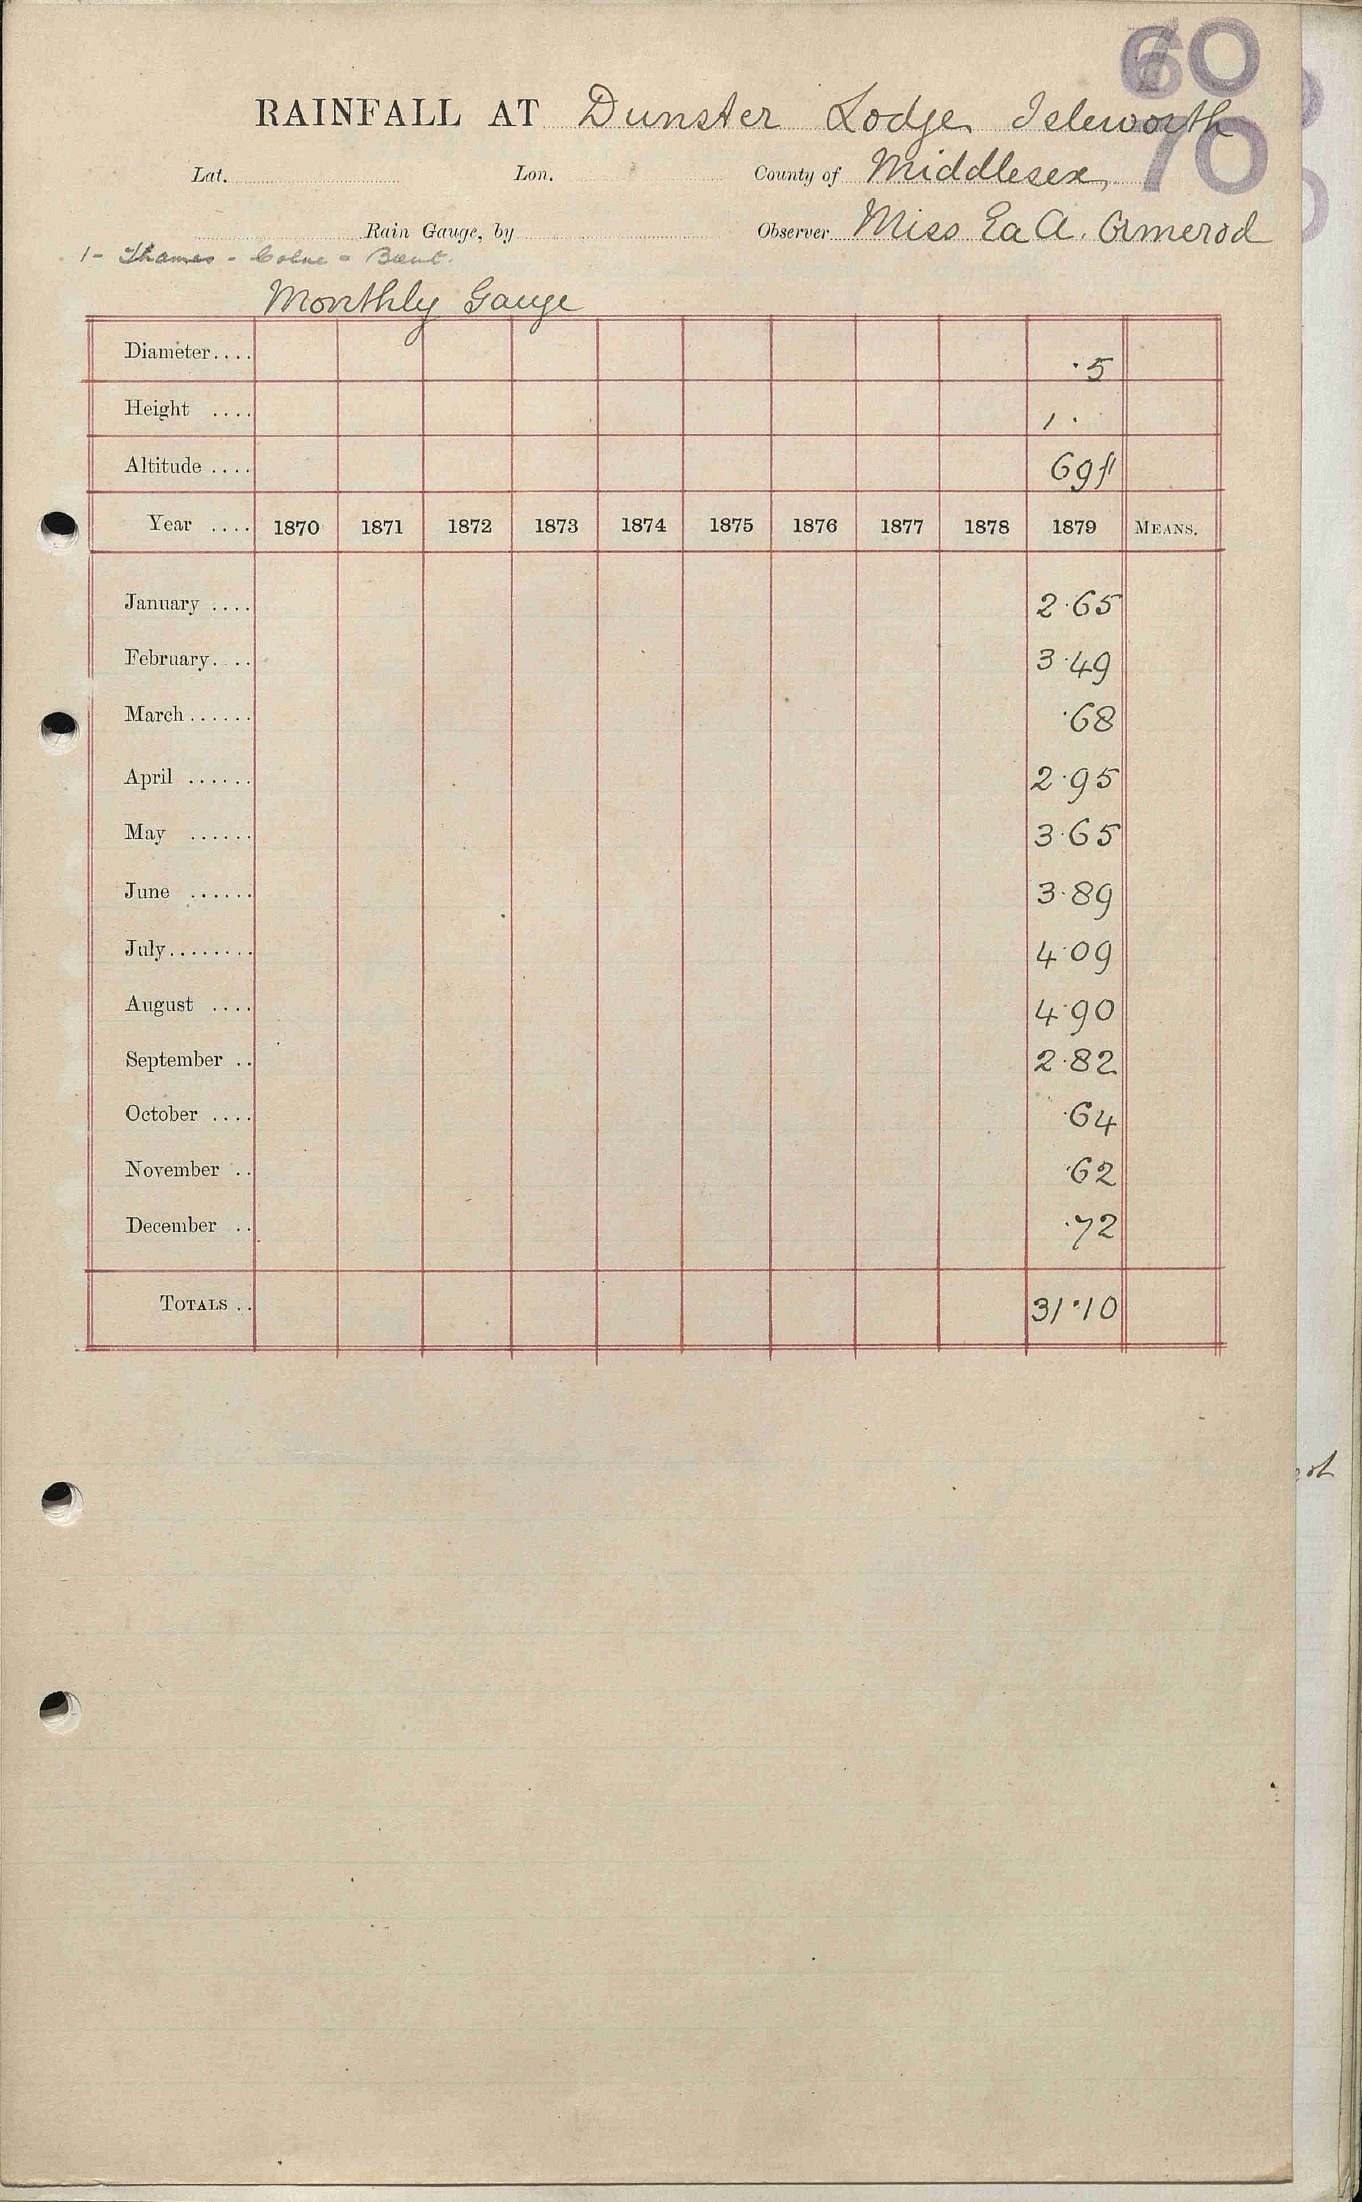 60
70
RAINFALL AT Dunster Lodge, Isleworth
Lat. Lon. County of Middlesex,
Rain Gauge, by Observer Miss Ea A. Ormerod
1 - Thames - Colne - Brent.
Monthly Gauge
Diameter.... .5
Height .... 1.
Altitude .... 69ft
Year .... 1870 1871 1872 1873 1874 1875 1876 1877 1878 1879 MEANS.
January .... 2.65
February.... 3.49
March...... .68
April ...... 2.95
May ...... 3.65
June ...... 3.89
July........ 4.09
August .... 4.90
September .. 2.82
October .... .64
November .. .62
December .. .72
TOTALS .. 31.10